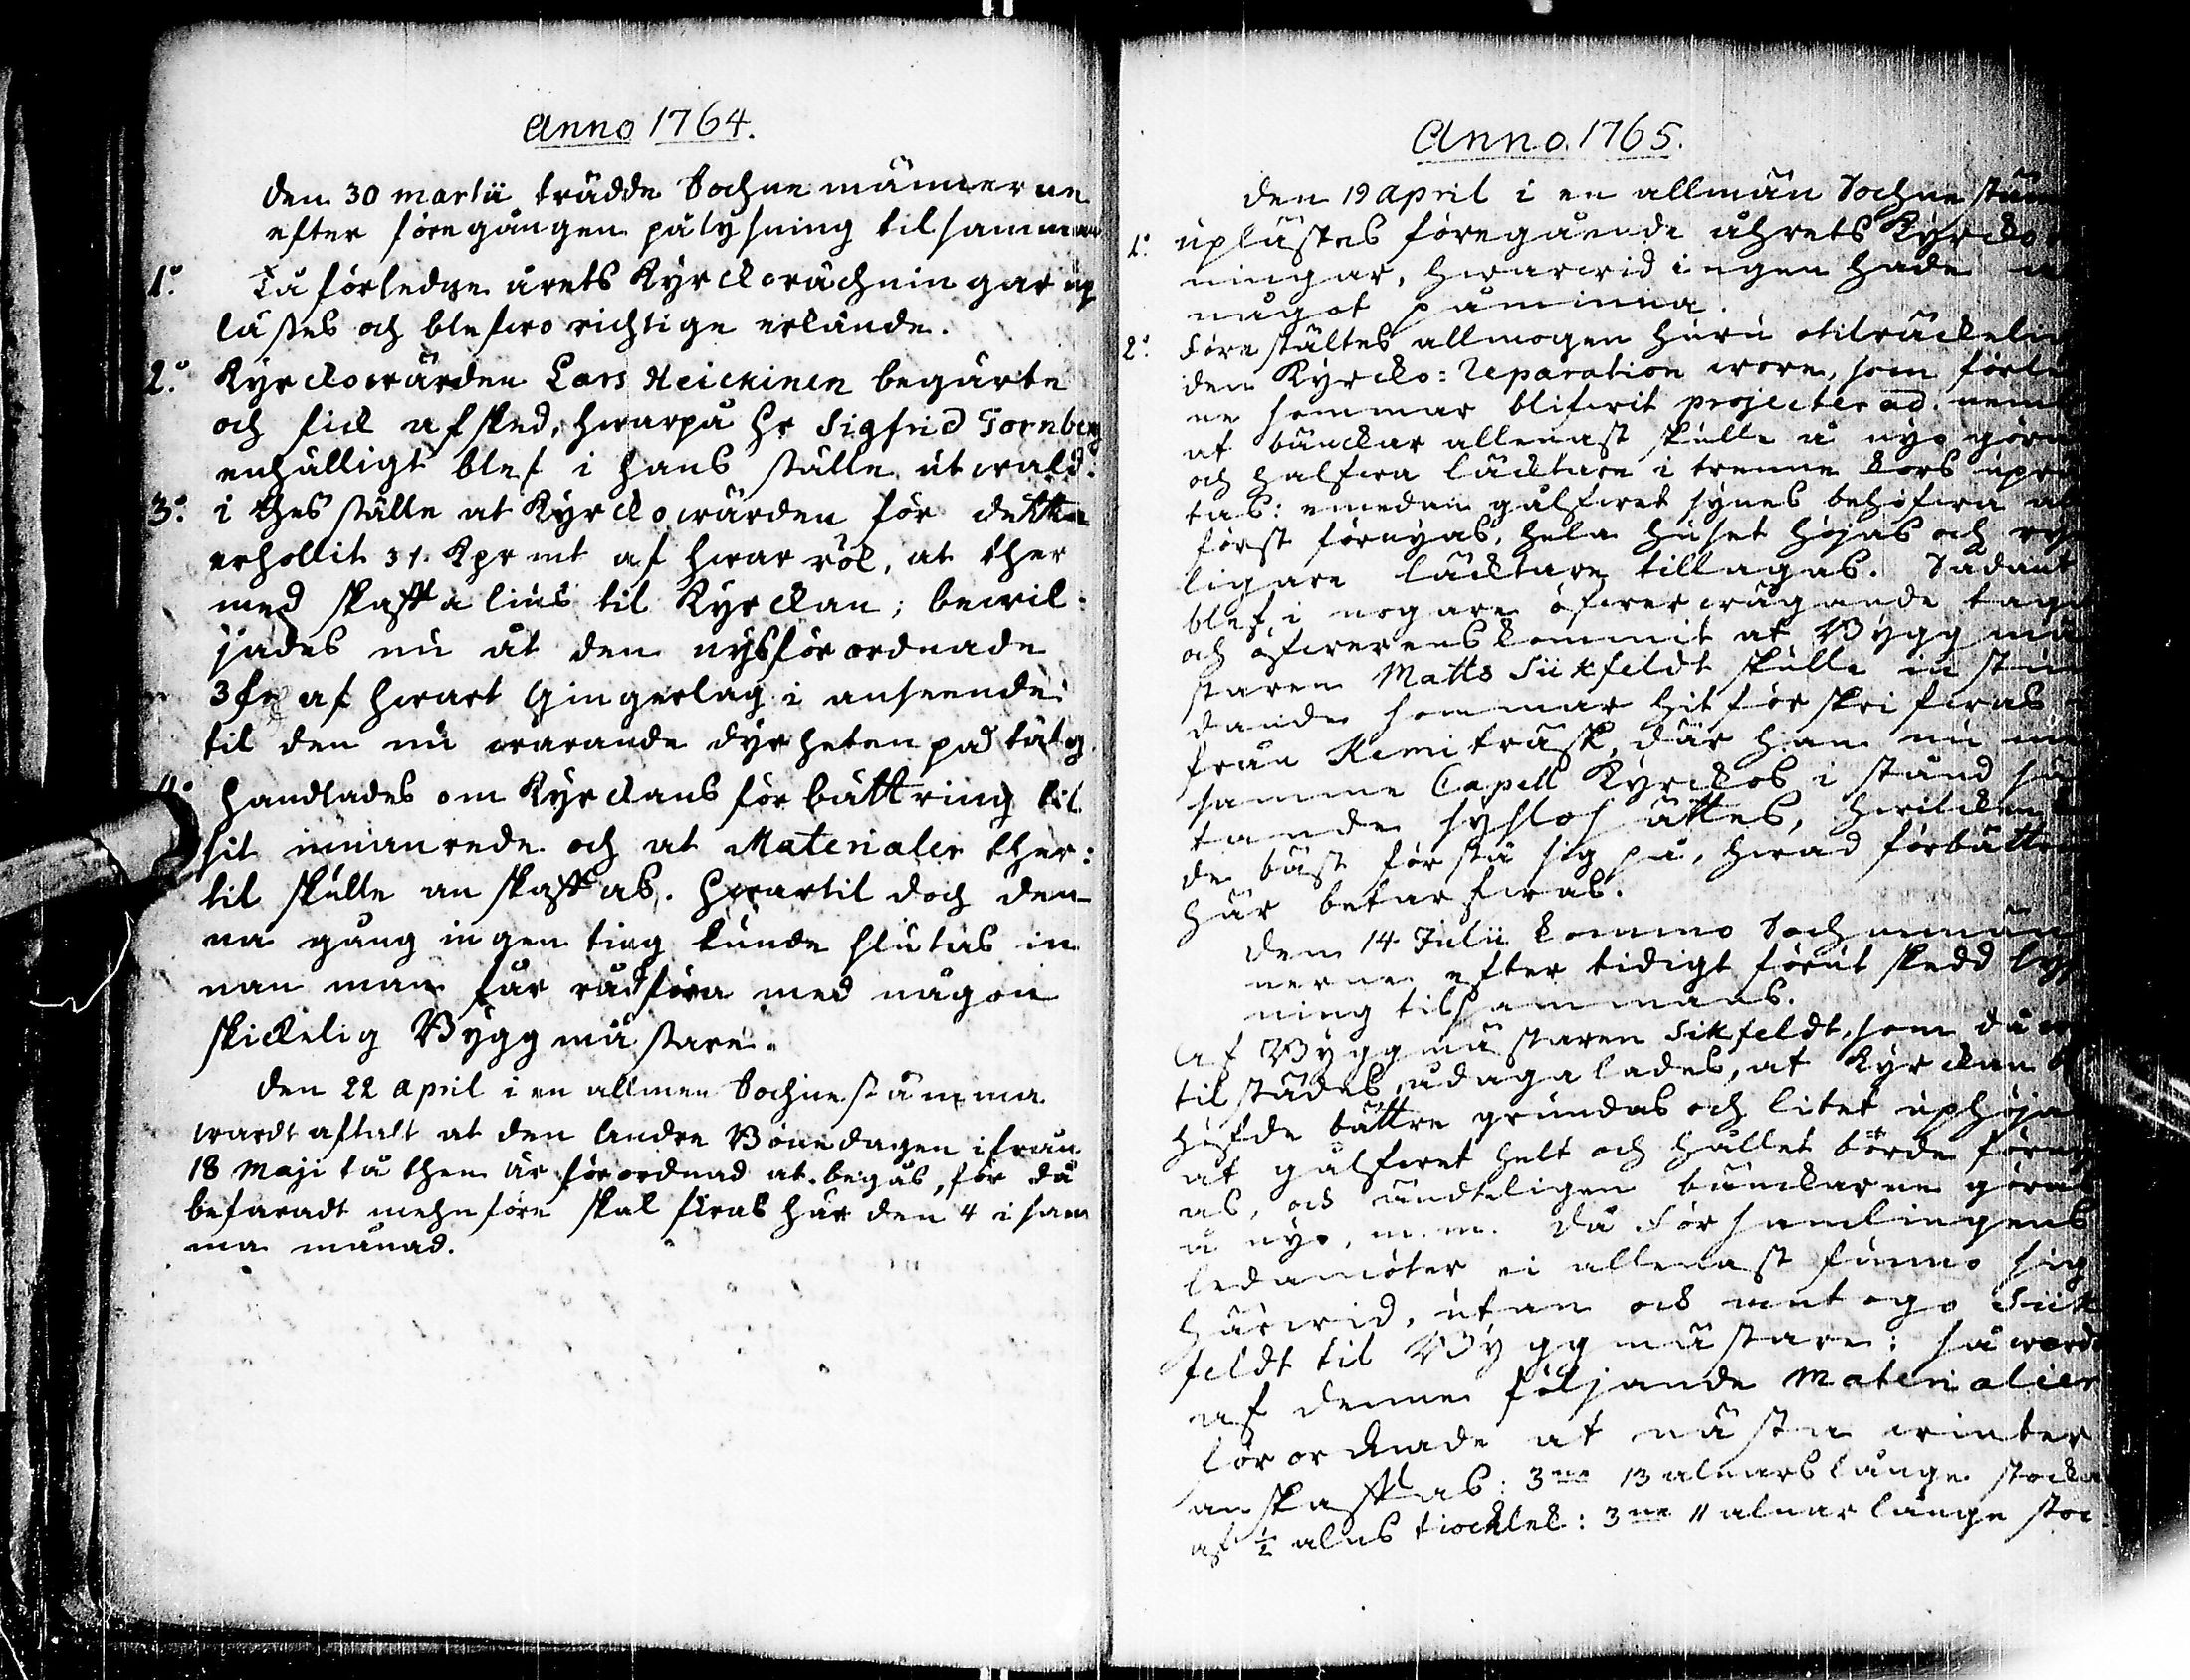 Anno 1764.
den 30 martii trädde Sochnemännerne
efter föregången pålysning tilsamman
1:o Då förledne årets Kyrckoräckningar up
lästes och blefwo richtige erkände.
2:o Kyrckowärden Lars Heickinen begärte
och fick afsked, hwarpå Hr Sigfrid Tornberg
enhälligt blef i hans ställe utwald.
3:o i thes ställe at Kyrckowärden för detta
erhollit 31. Kpr mt af hwar rök, at ther
med skaffa lius til Kyrckan; bewil:
jades nu åt den nyssförordnade
3 af hwart Gingerlag i anseende
til den nu warande dyrheten på talg
4:o Handlades om Kyrckans förbättring til
sit innanrede och at Materialer ther:
til skulle anskaffas. Hwartil doch den
na gång ingen ting kunde slutas in
nan man får rådföra med någon
skickelig Byggmästare.
den 22 april i en allmen Sochnestämma
wardt aftalt at den Andre Bönedagen ifrån
18 Maji tå then är förordnad at begås, för då
befaradt mehnföre skal firas här den 4 i sam
ma månad.
Anno 1765.
den 19 April i en allmän Sochnestäm
1:o uplästes föregående åhrets Kyrcko
ningar, hwarwid ingen hade
något påminna.
2:o Föreställtes allmogen huru otilräckelig
den Kyrcko: Reparation wore, som förle
ne sommar blifwit projecterad. neml
at bänckar allenast skulle å nyo göra
och halfwa läcktare i trenne kors uprä
tas: emedan gålfwet synes behöfwa al
först förnyas, hela huset höjas och ry
ligare läcktare tillagas. Sådant
blef i nogare öfwerwägande tagit
och öfwerenskommit at Byggmä
staren Matts Siikfeldt skulle in stun
dande sommar hitförskrifwas
från Kemiträsk, där han nu
samme Capell Kyrckos i stånd sä
tande sysslosättes, hwilcken
de bäst förstå sig på, hwad förbättr
här betarfwas.
den 14 Julii kommo Sochnemän
nerne efter tidigt förut skedd lys
ning tilsammans.
Af Byggmästaren Siikfeldt, som då w
tilstädes, ådagalades, at Kyrckan b
höfde bättre grundas och litet uphöja
at gålfwet helt och hållet börde förny
as, och ändteligen bänckarne göras
å nyo, m. m. Då Församlingens
ledamöter ei allenast funno sig
härwid, utan ock antogo Siik
feldt til Byggmästare: så wordo
af denne följande Materialier
förordnade at nästa winter
anskaffas: 3ne 13 alnars långe stocka
af 1/2 alns tiocklek: 3ne 11 alnar långe stoc